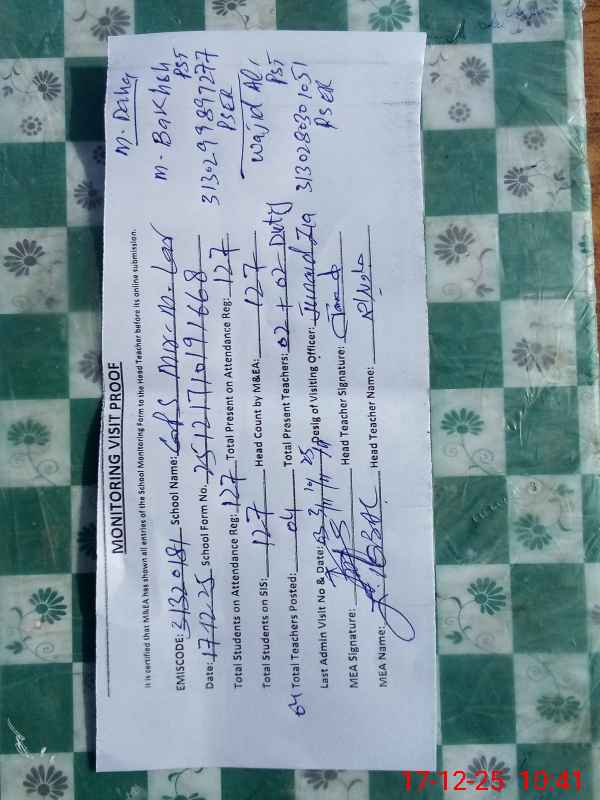 MONITORING VISIT PROOF
It is certified that M&EA has shown all entries of the School Monitoring Form to the Head Teacher before its online submission.
EMISCODE: 31320181 School Name: GPS
Date: 17-12-25 School Form No. 251217101191668
Total Students on Attendance Reg: 127 Total Present on Attendance Reg: 127
Total Students on SIS: 127 Head Count by M&EA: 127
04 Total Teachers Posted: 04 Total Present Teachers: 02 + 02 Duty
Last Admin Visit No & Date: Desig of Visiting Officer: Junaid Zia
MEA Signature: Head Teacher Signature:
MEA Name: Head Teacher Name:
M. Daha
M. Bakhsh
PST
3130299897277
PSER
Wajid Al
PST
3130280301051
PSER
17-12-25 10:41